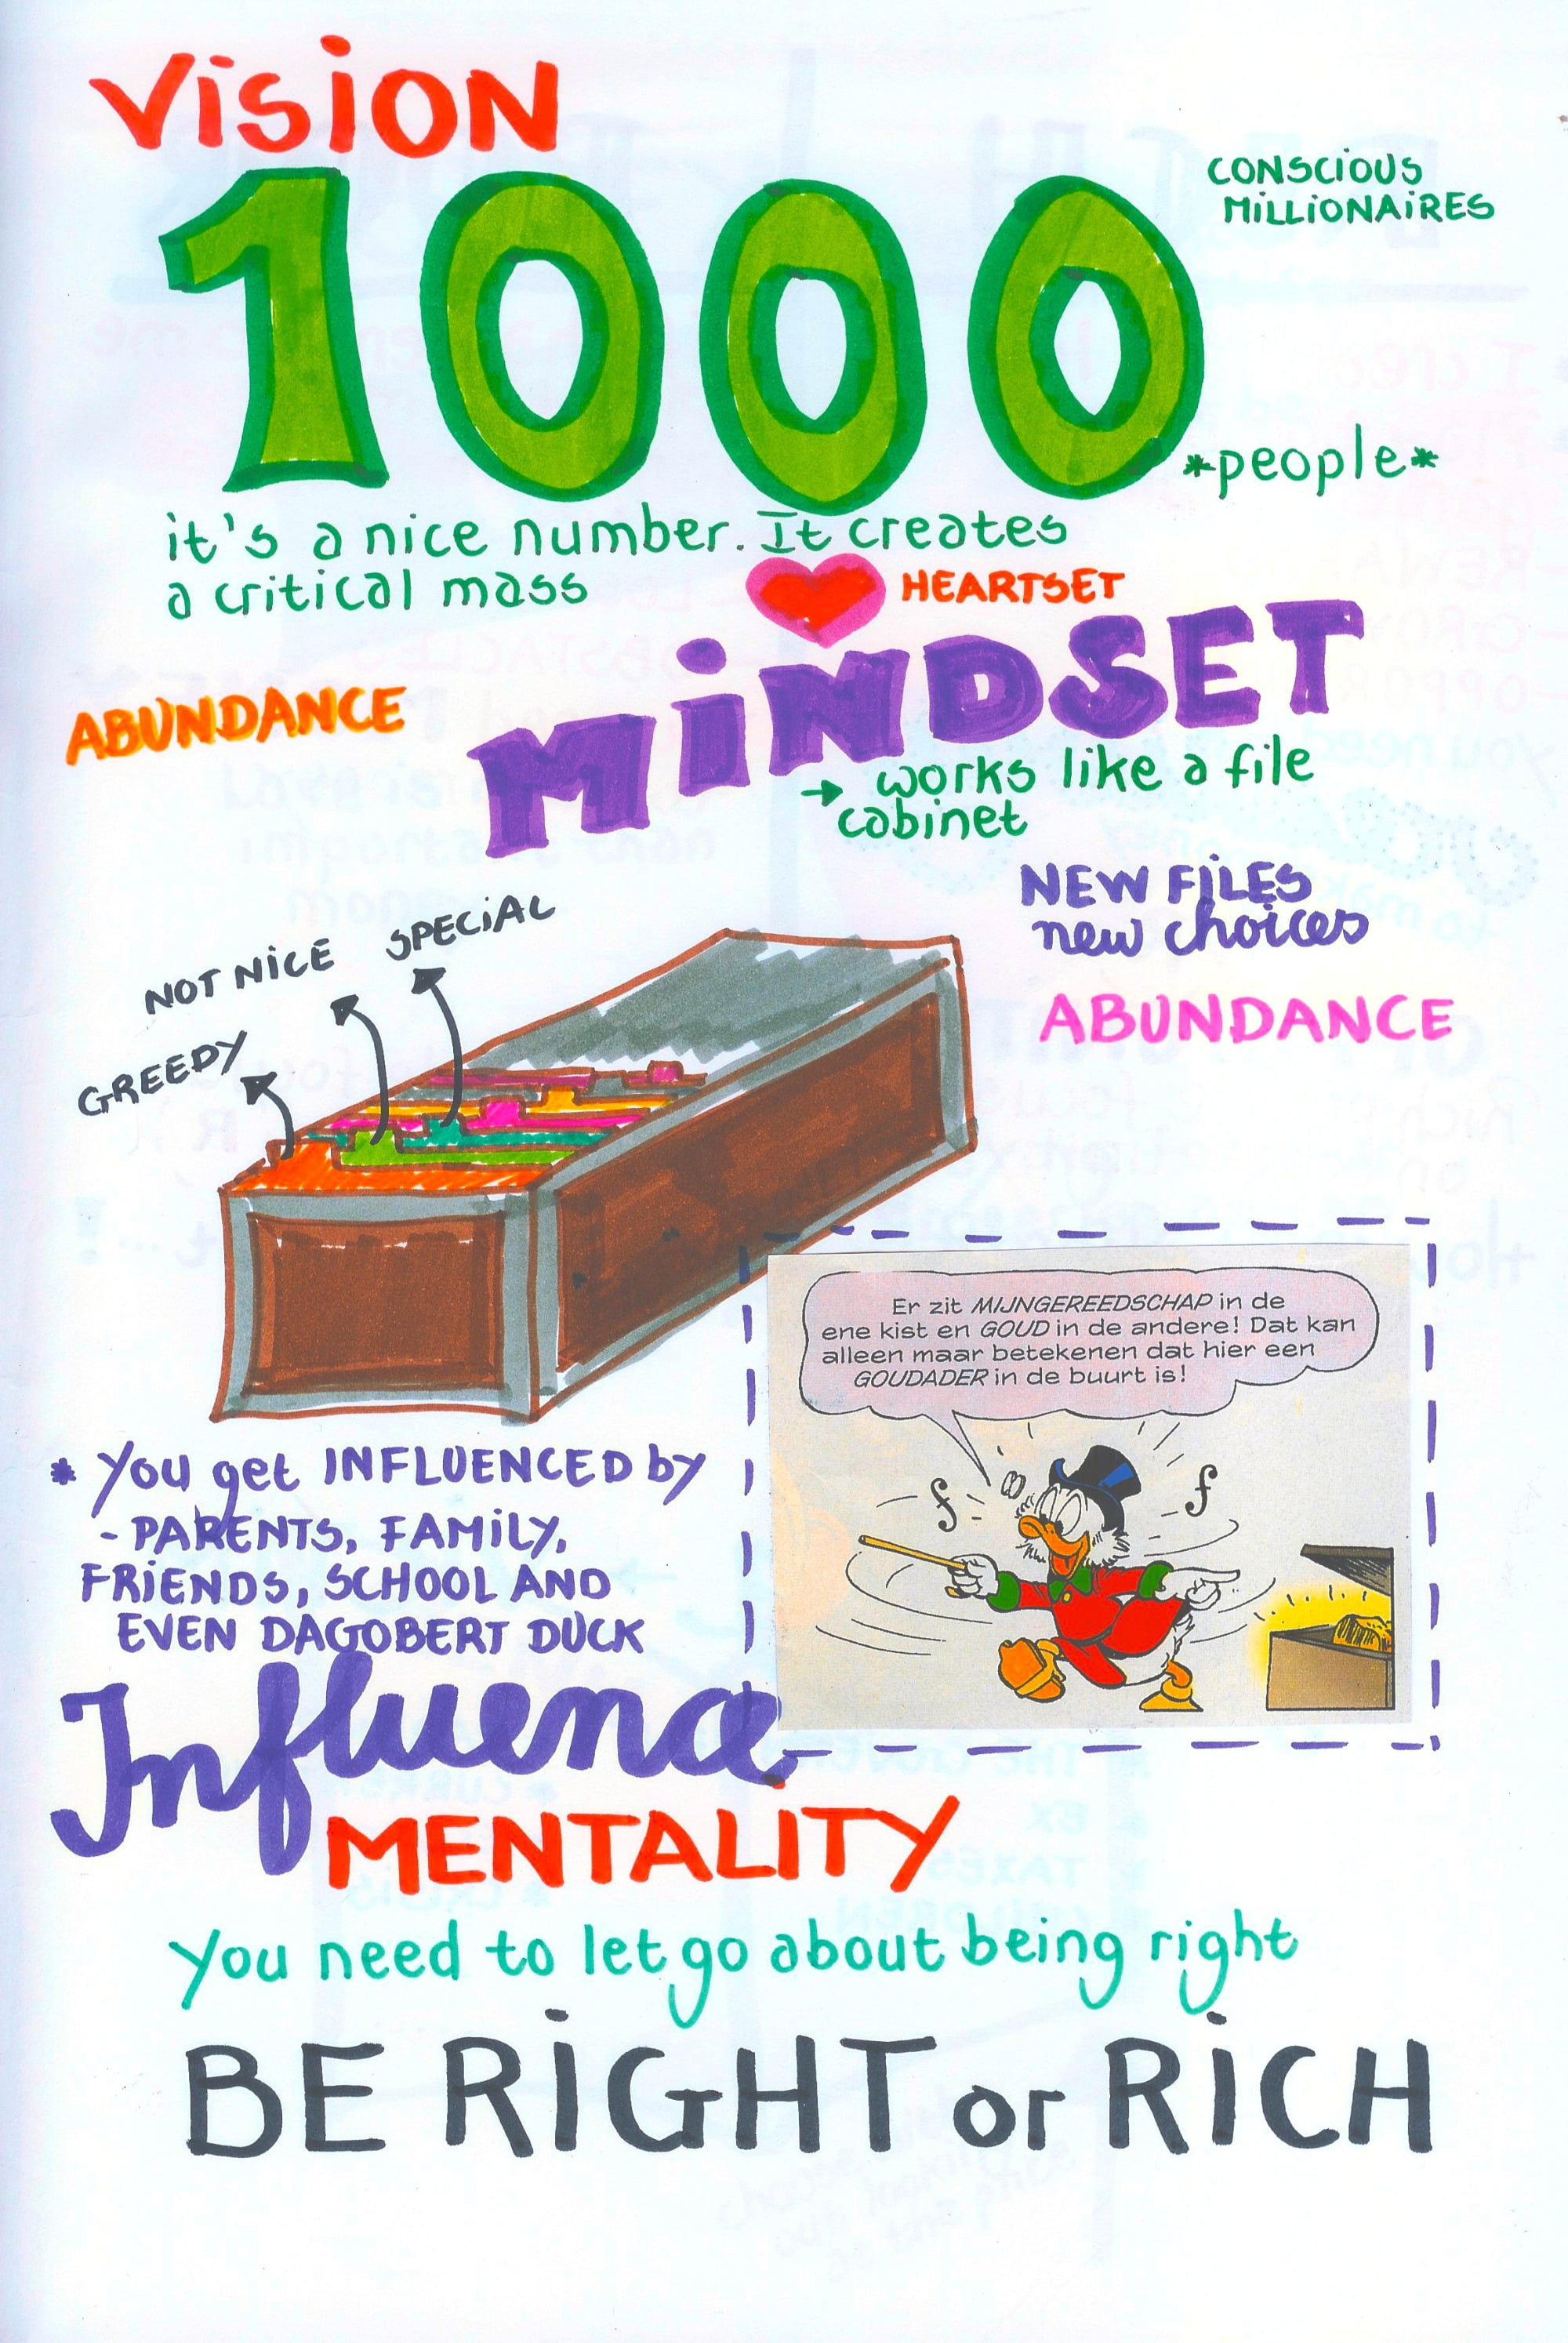 VISION
1000
CONSCIOUS
MILLIONAIRES
*people*
it's a nice number. It creates
a critical mass
HEARTSET
MINDSET
ABUNDANCE
→ works like a file
cabinet
NEW FILES
new choices
ABUNDANCE
SPECIAL
NOT NICE
GREEDY
Er zit MIJNGEREEDSCHAP in de
ene kist en GOUD in de andere! Dat kan
alleen maar betekenen dat hier een
GOUDADER in de buurt is!
* You get INFLUENCED by
- PARENTS, FAMILY,
FRIENDS, SCHOOL AND
EVEN DAGOBERT DUCK
Influence
MENTALITY
You need to let go about being right
BE RIGHT or RICH